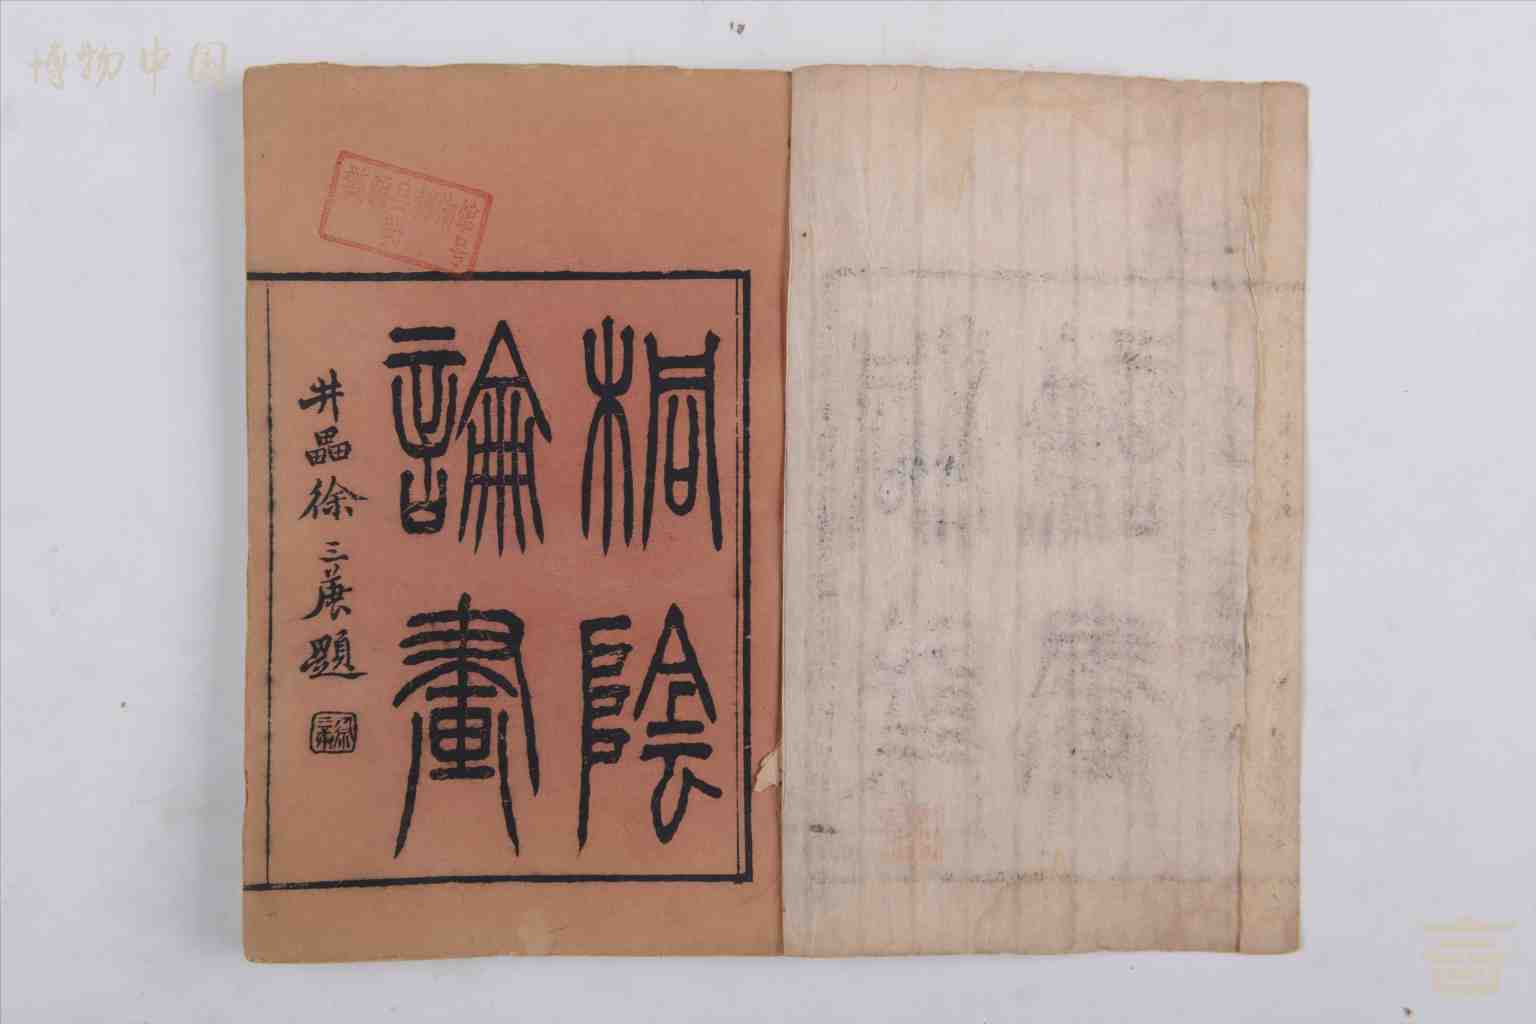 博物中国
桐陰
論畫
井畾徐三庚題